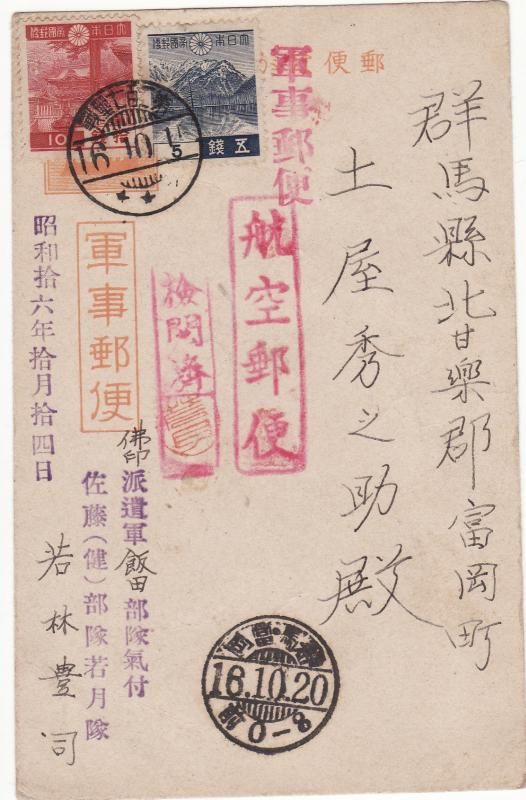 群馬縣北甘樂郡富岡町
土屋秀之助殿
郵便
軍事郵便
航空郵便
檢閲濟
軍事郵便
佛印派遣軍飯田部隊氣付
佐藤(健)部隊若月隊
若林豊司
昭和拾六年拾月拾四日
大日本帝國郵便
10
大日本帝國郵便
五錢
16.10.15
群馬・富岡
16.10.20
前0-8